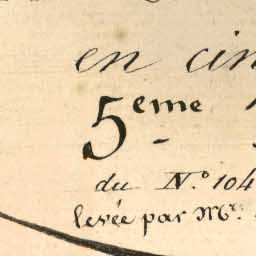 en cin
5eme
du N.º 104
levée par Mr.